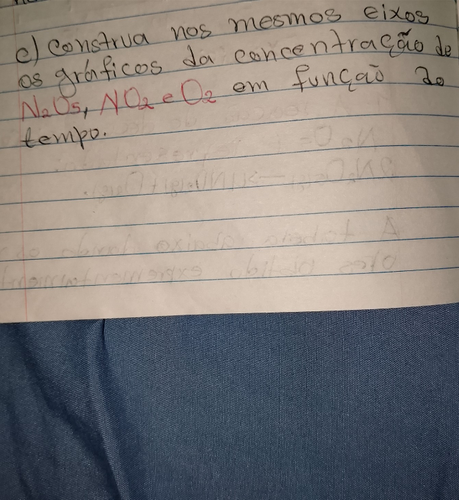 c) Construa nos mesmos eixos
os gráficos da concentração de
N₂O₅, NO₂ e O₂ em função do
tempo.